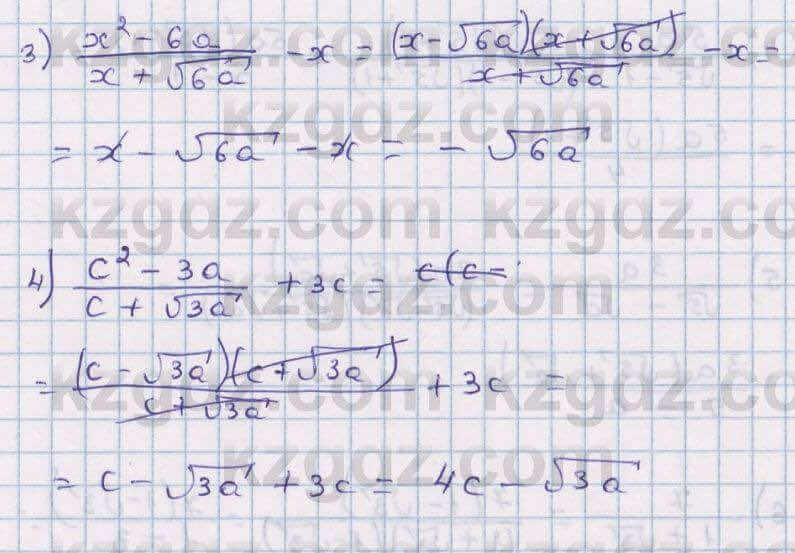 3) (x² - 6a)/(x + √6a) - x = ((x - √6a)(x + √6a))/(x + √6a) - x =
= x - √6a - x = - √6a
4) (c² - 3a)/(c + √3a) + 3c = c(c -
= ((c - √3a)(c + √3a))/(c + √3a) + 3c =
= c - √3a + 3c = 4c - √3a
kzgdz.com